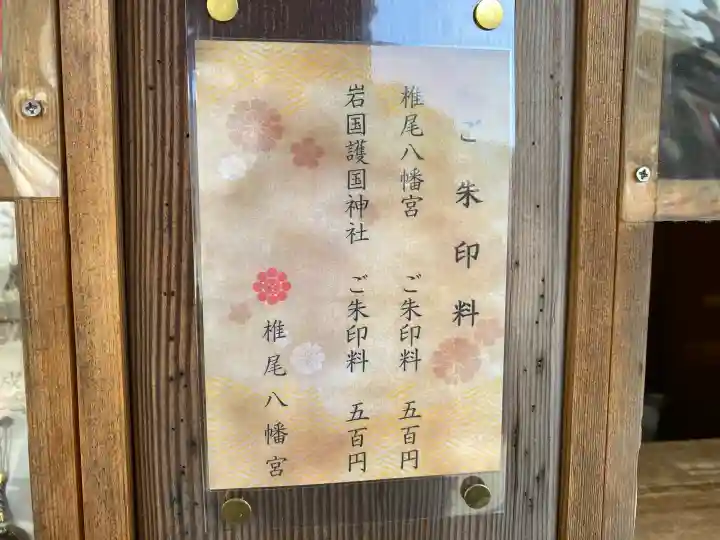 ご朱印料
椎尾八幡宮 ご朱印料 五百円
岩国護国神社 ご朱印料 五百円
椎尾八幡宮